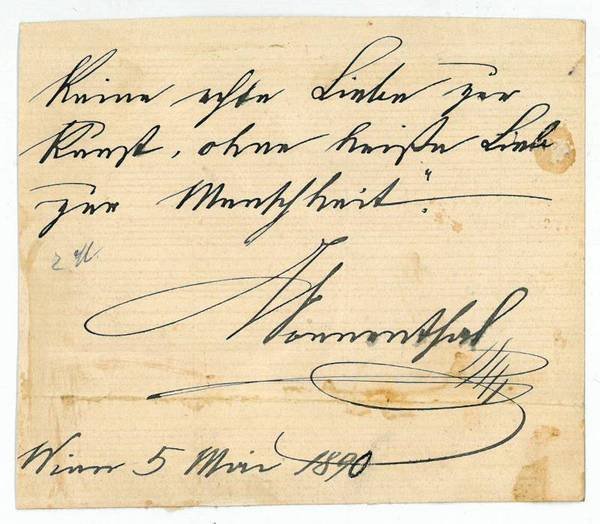 Keine echte Liebe zur
Kunst, ohne heiße Liebe
zur Menschheit".
Sonnenthal
Wien 5 Mai 1890